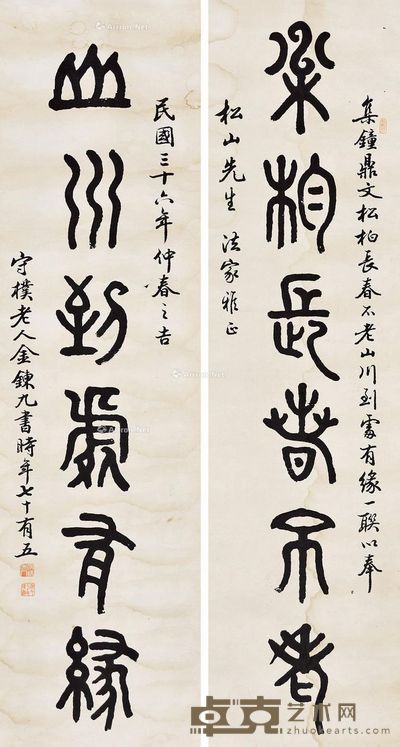 集鐘鼎文松柏長春不老山川到處有緣一聯以奉
松柏長春不老
松山先生 法家雅正
民國三十六年仲春之吉
山川到處有緣
守樸老人金鍊九書時年七十有五
卓克艺术网
zhuokearts.com